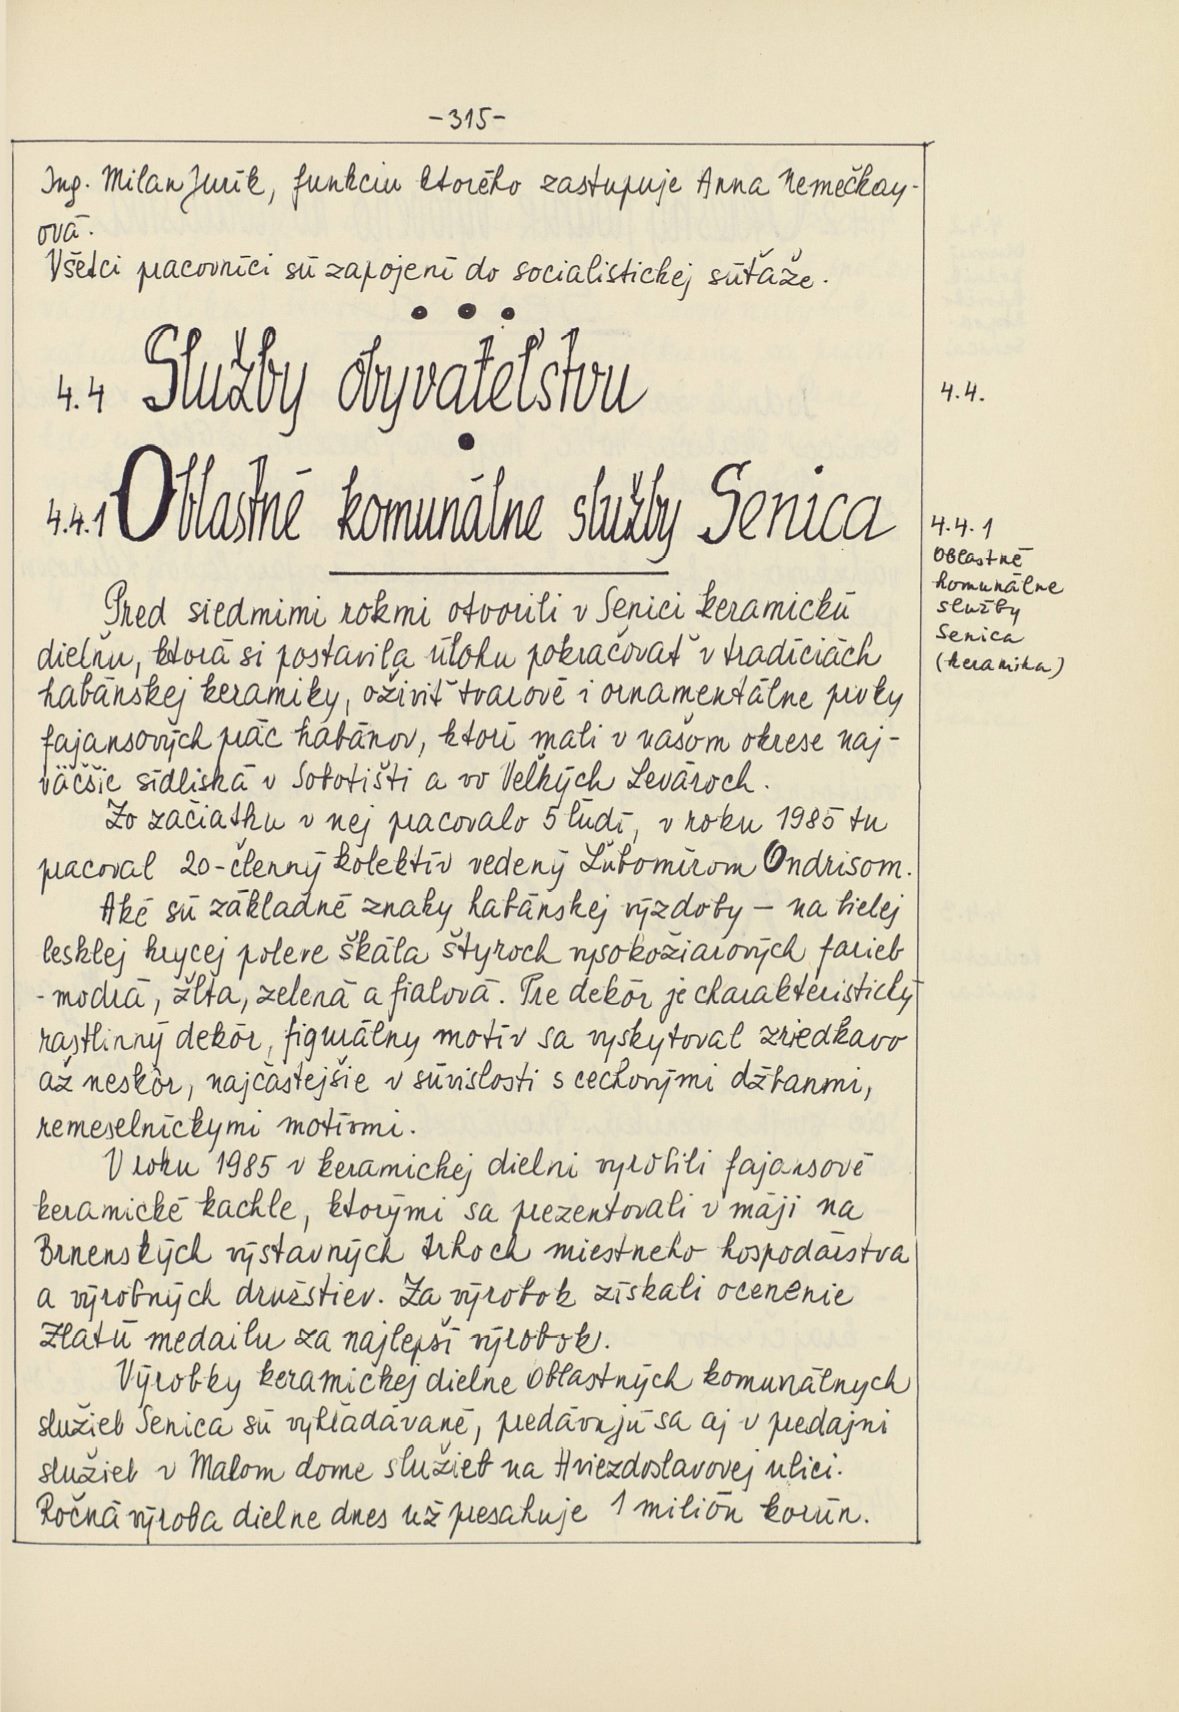 -315-
Ing. Milan Jurík, funkciu ktorého zastupuje Anna Nemečkay-
ová.
Všetci pracovníci sú zapojení do socialistickej súťaže.
4.4 Služby obyvateľstvu
4.4.
4.4.1 Oblastné komunálne služby Senica
4.4.1
Oblastné
komunálne
služby
Senica
(keramika)
Pred siedmimi rokmi otvorili v Senici keramickú
dielňu, ktorá si postavila úlohu pokračovať v tradíciách
habánskej keramiky, oživiť tvarové i ornamentálne prvky
fajansových prác habánov, ktorí mali v našom okrese naj-
väčšie sídliská v Sobotišti a vo Veľkých Levároch.
Zo začiatku v nej pracovalo 5 ľudí, v roku 1985 tu
pracoval 20-členný kolektív vedený Ľubomírom Ondrisom.
Aké sú základné znaky habánskej výzdoby – na bielej
lesklej krycej poleve škála štyroch vysokožiarových farieb
- modrá, žltá, zelená a fialová. Pre dekór je charakteristický
rastlinný dekór, figurálny motív sa vyskytoval zriedkavo
až neskôr, najčastejšie v súvislosti s cechovými džbanmi,
remeselníckymi motívmi.
V roku 1985 v keramickej dielni vyrobili fajansové
keramické kachle, ktorými sa prezentovali v máji na
Brnenských výstavných trhoch miestneho hospodárstva
a výrobných družstiev. Za výrobok získali ocenenie
Zlatú medailu za najlepší výrobok.
Výrobky keramickej dielne Oblastných komunálnych
služieb Senica sú vyhľadávané, predávajú sa aj v predajni
služieb v Malom dome služieb na Hviezdoslavovej ulici.
Ročná výroba dielne dnes už presahuje 1 milión korún.